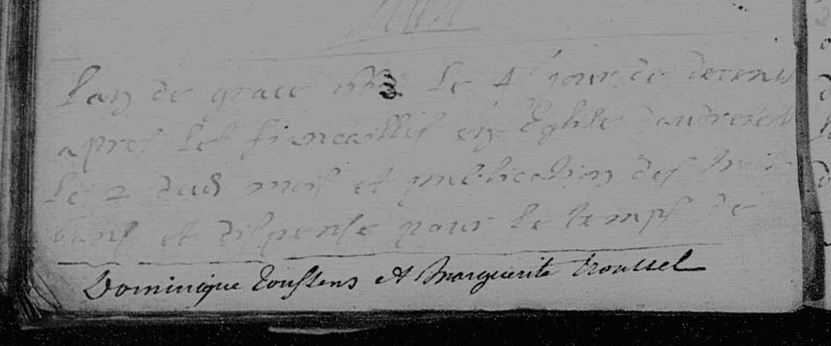 Lan de grace le 4 jour de decemb
apres les fiancailles en Eglise
le 2 dud mois et publication des trois
bans et dispense pour le temps de
Dominique Toussens et Marguerite Troussel